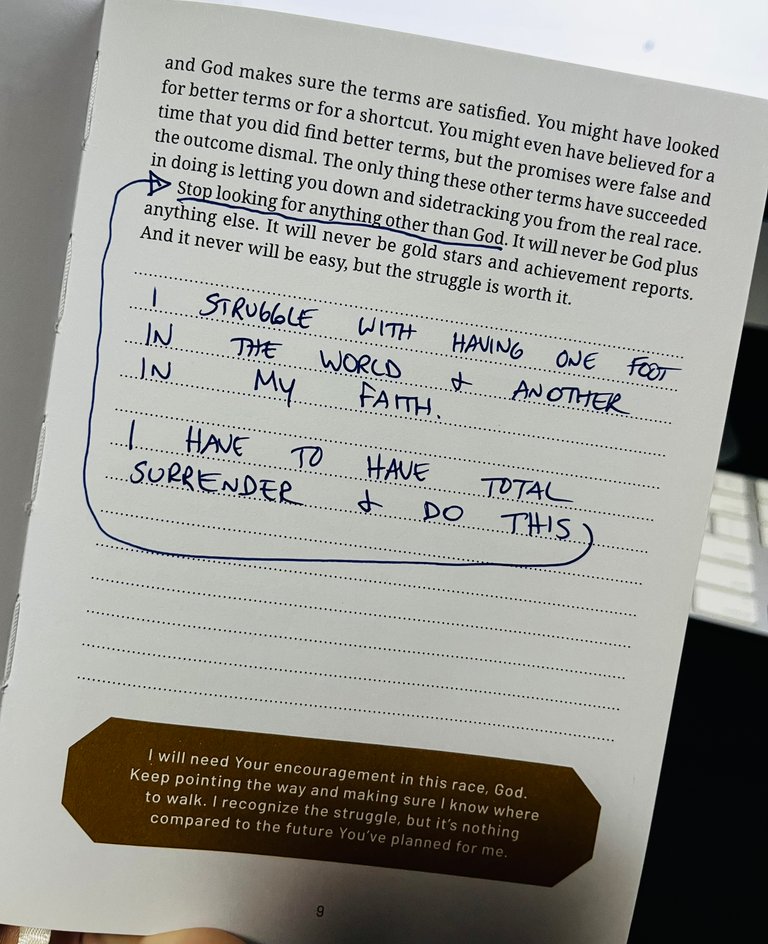 and God makes sure the terms are satisfied. You might have looked
for better terms or for a shortcut. You might even have believed for a
time that you did find better terms, but the promises were false and
the outcome dismal. The only thing these other terms have succeeded
in doing is letting you down and sidetracking you from the real race.
Stop looking for anything other than God. It will never be God plus
anything else. It will never be gold stars and achievement reports.
And it never will be easy, but the struggle is worth it.
I STRUGGLE WITH HAVING ONE FOOT
IN THE WORLD & ANOTHER
IN MY FAITH.
I HAVE TO HAVE TOTAL
SURRENDER & DO THIS
I will need Your encouragement in this race, God.
Keep pointing the way and making sure I know where
to walk. I recognize the struggle, but it's nothing
compared to the future You've planned for me.
9